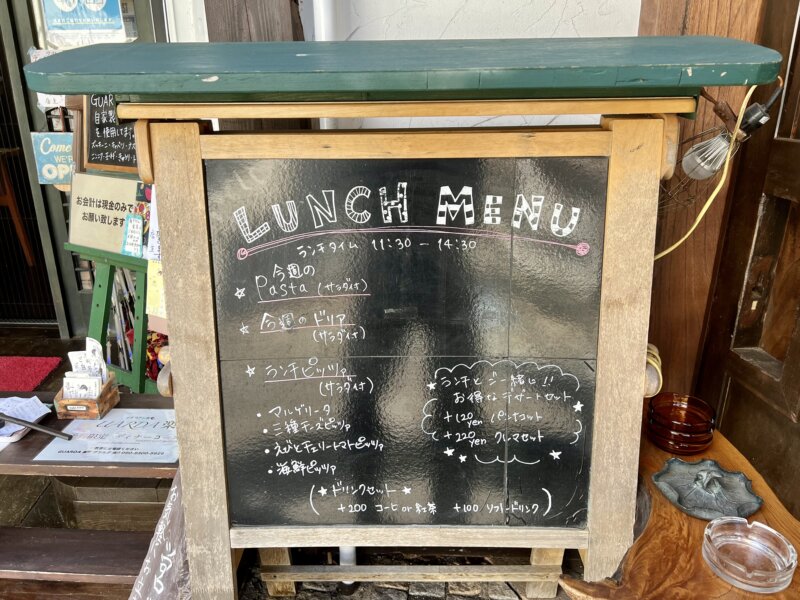 LUNCH MENU
ランチタイム 11:30 - 14:30
☆ 今週の
Pasta (サラダ付)
☆ 今週のドリア
(サラダ付)
☆ ランチピッツァ
(サラダ付)
・マルゲリータ
・三種チーズピッツァ
・えびとチェリートマトピッツァ
・海鮮ピッツァ
★ランチとご一緒に!!
お得なデザートセット
+120yen パンナコット
+220yen クレマセット
(★ドリンクセット★
+200 コーヒ or 紅茶 +100 ソフトドリンク)
GUAR
自家製
を使用してます
Come
WE'R
OP
お会計は現金のみで
お願い致します